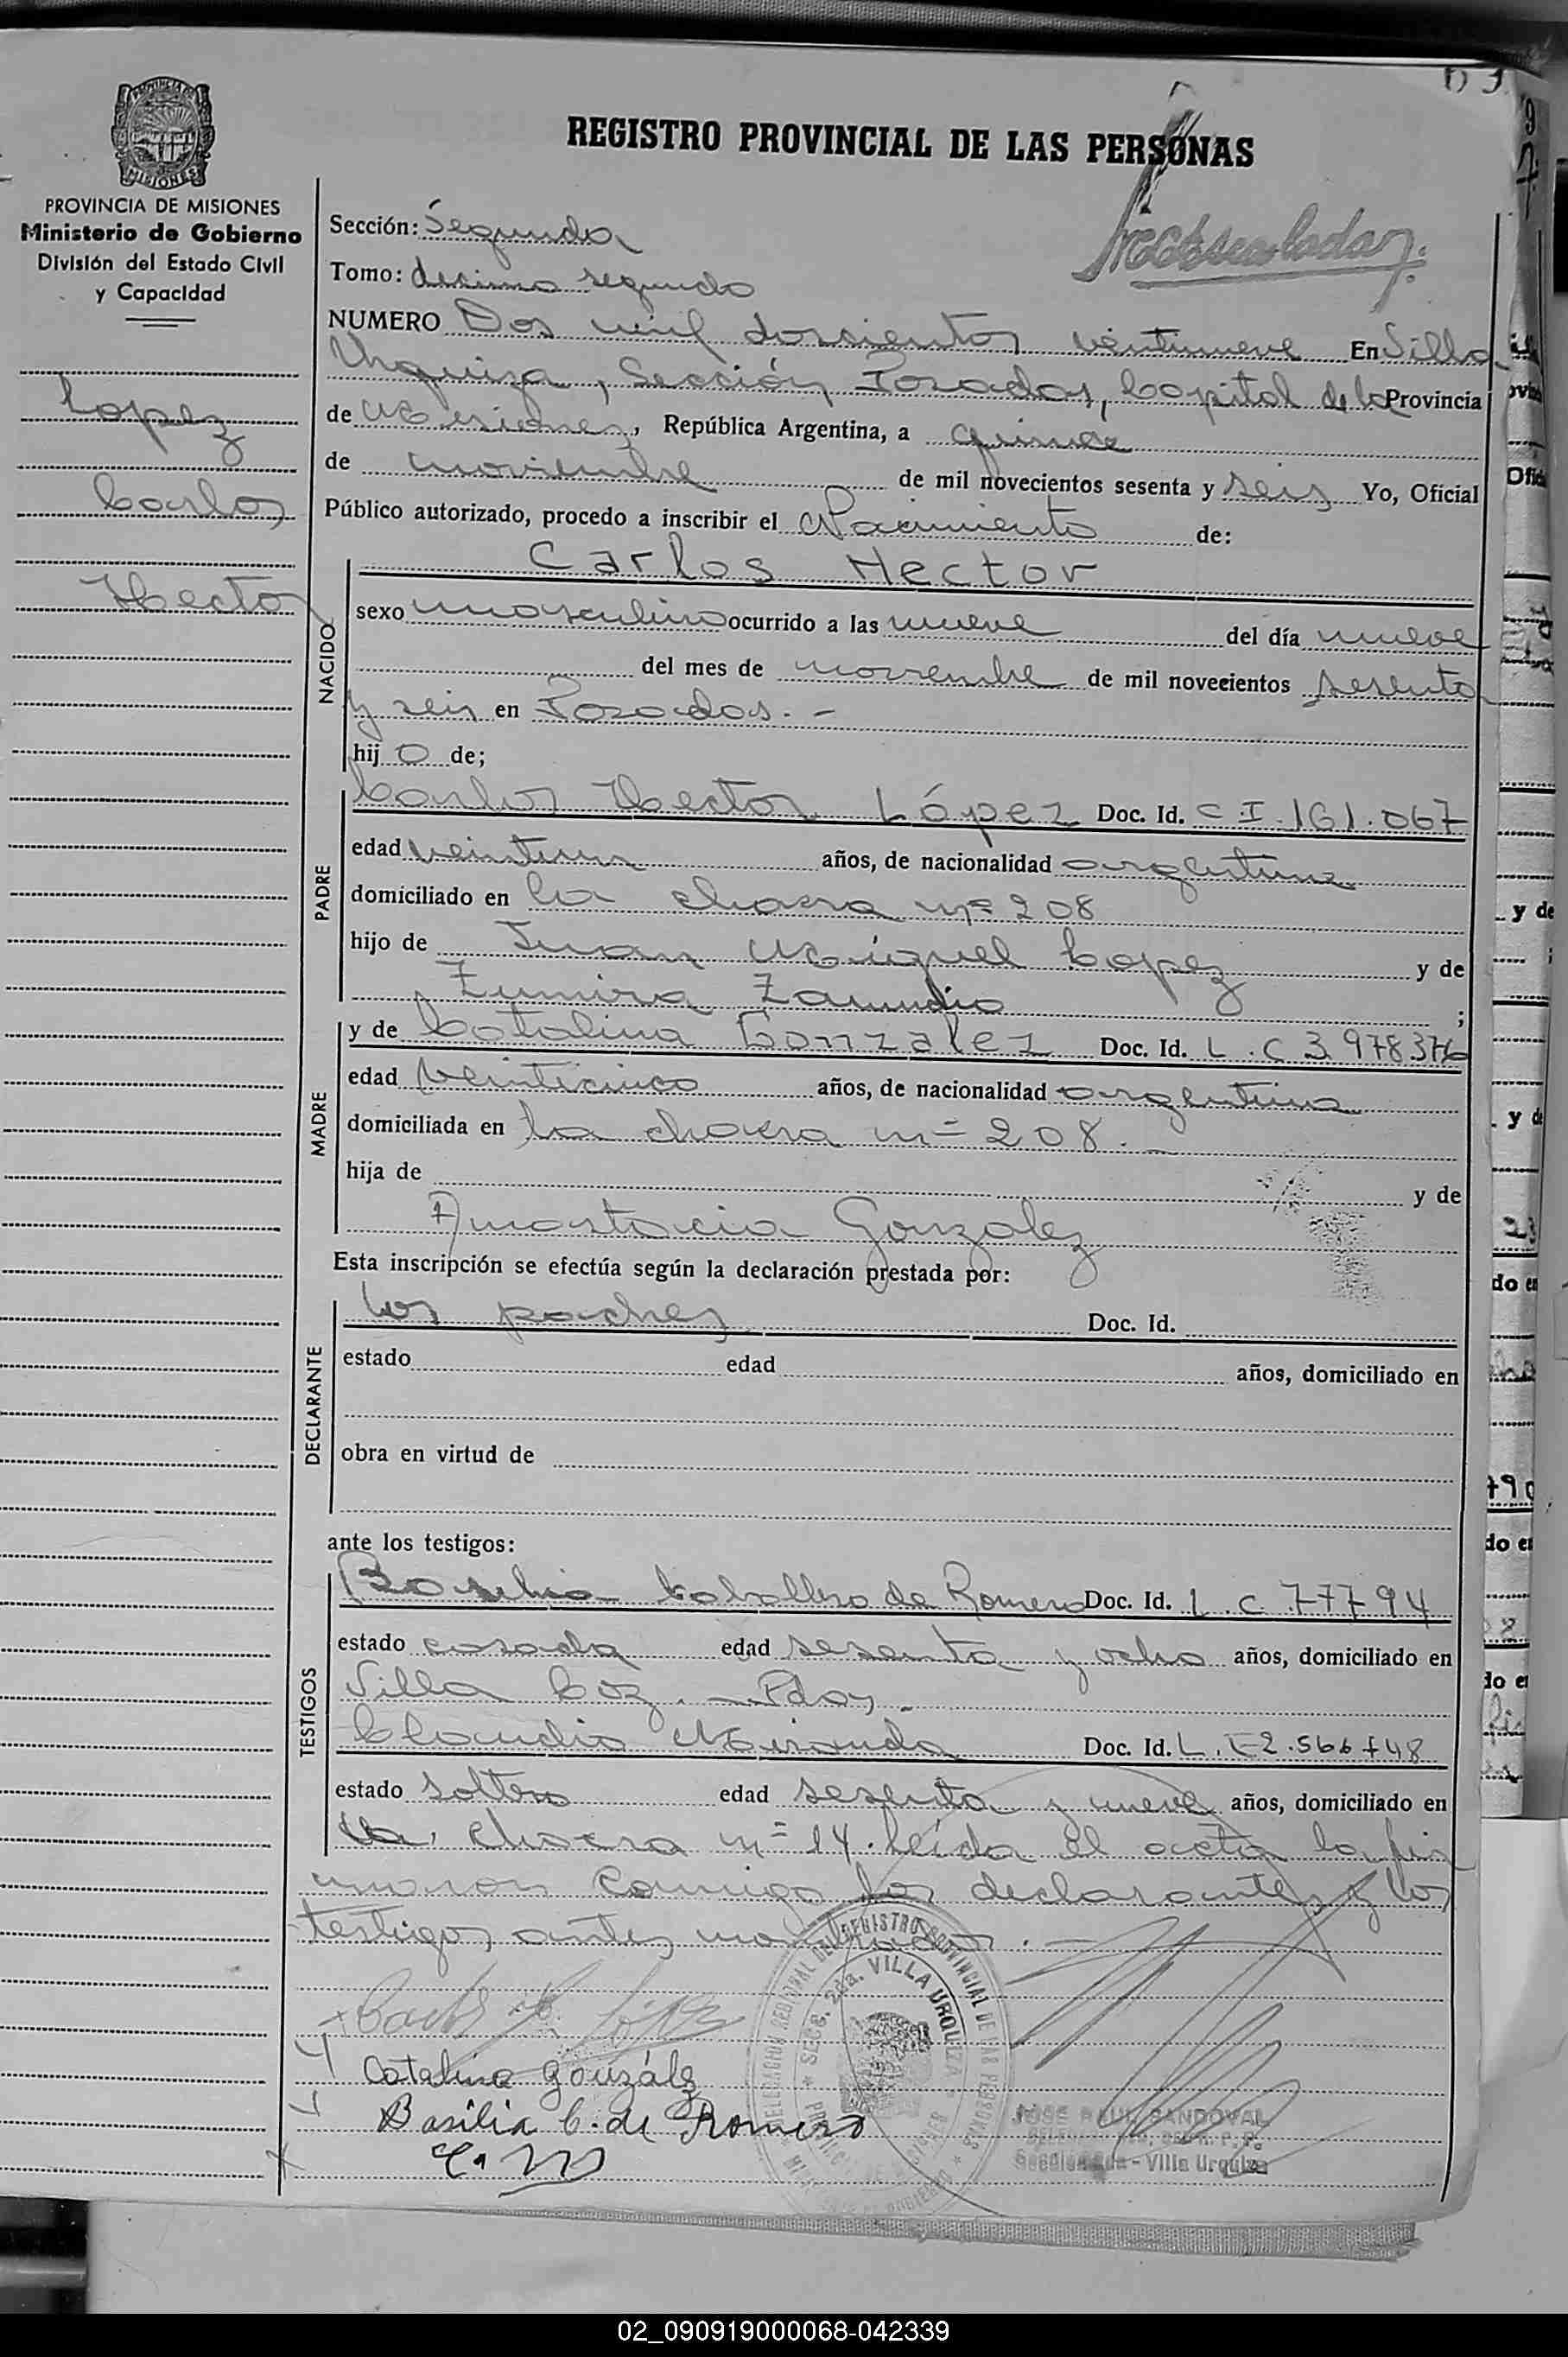 REGISTRO PROVINCIAL DE LAS PERSONAS
MISIONES
PROVINCIA DE MISIONES
Ministerio de Gobierno
División del Estado Civil
y Capacidad
Lopez
Carlos
Hector
Sección: Segunda
Tomo: decimo segundo
NUMERO Dos mil doscientos veintinueve En Villa
Urquiza, Sección Posadas, Capital de la Provincia
de Misiones, República Argentina, a quince
de noviembre de mil novecientos sesenta y seis Yo, Oficial
Público autorizado, procedo a inscribir el Nacimiento de:
NACIDO
Carlos Hector
sexo masculino ocurrido a las nueve del día nueve
del mes de noviembre de mil novecientos sesenta
y seis en Posadas. -
hijo de;
PADRE
Carlos Hector López Doc. Id. C I. 161.067
edad veintiun años, de nacionalidad argentina
domiciliado en la chacra nº 208
hijo de Juan Miguel Lopez y de
Zamudio ;
MADRE
y de Catalina Gonzalez Doc. Id. L. C 3.978376
edad veinticinco años, de nacionalidad argentina
domiciliada en la chacra nº 208. -
hija de y de
Anastacia Gonzalez
Esta inscripción se efectúa según la declaración prestada por:
DECLARANTE
los padres Doc. Id.
estado edad años, domiciliado en
obra en virtud de
ante los testigos:
TESTIGOS
Basilia Caballero de Romero Doc. Id. L. C 77794
estado casada edad sesenta y ocho años, domiciliado en
Villa Coz. - Pdas.
Claudio Miranda Doc. Id. L. E 2.566748
estado soltero edad sesenta y nueve años, domiciliado en
la chacra nº 14. Leída el acta la fir
maron conmigo los declarantes y los
testigos antes nombrados. -
Carlos H. López
Catalina González
Basilia C. de Romero
C. M
REGISTRO PROVINCIAL DE LAS PERSONAS
SECC. 2da. VILLA URQUIZA
JOSE RAUL SANDOVAL
Villa Urquiza
02_090919000068-042339